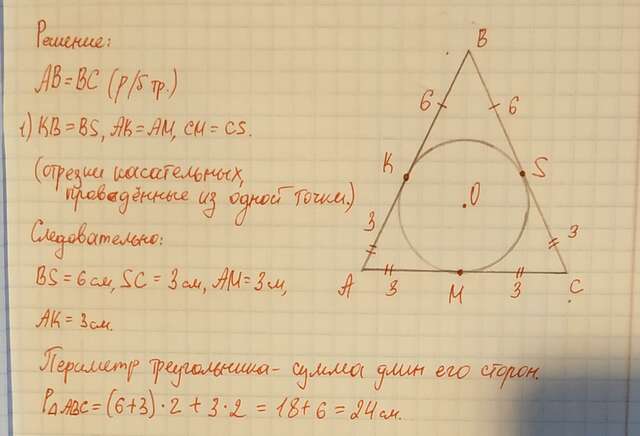 Решение:
AB = BC (р/б тр.)
1) KB = BS, AK = AM, CM = CS.
(отрезки касательных,
проведённые из одной точки.)
Следовательно:
BS = 6 см, SC = 3 см, AM = 3 см,
AK = 3 см.
Периметр треугольника - сумма длин его сторон.
P△ABC = (6+3) · 2 + 3 · 2 = 18 + 6 = 24 см.
B
6
6
K
S
O
3
3
A
3
M
3
C